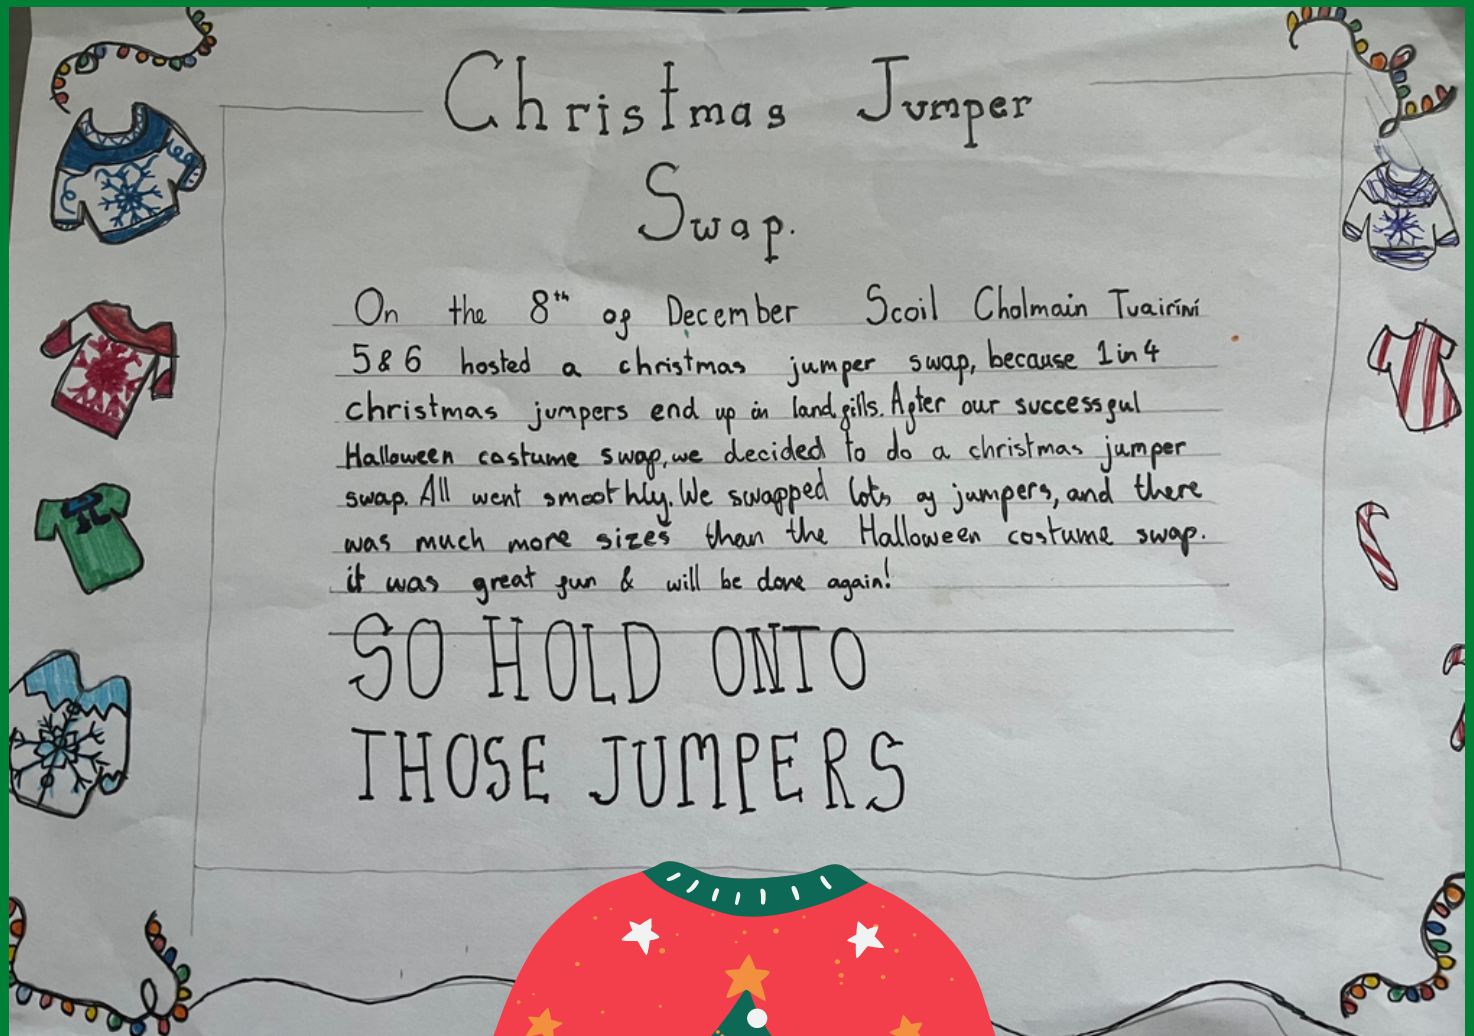 Christmas Jumper
Swap.
On the 8th of December Scoil Cholmain Tuairíní
5 & 6 hosted a christmas jumper swap, because 1 in 4
christmas jumpers end up in landfills. After our successful
Halloween costume swap, we decided to do a christmas jumper
swap. All went smoothly. We swapped lots of jumpers, and there
was much more sizes than the Halloween costume swap.
it was great fun & will be done again!
SO HOLD ONTO
THOSE JUMPERS